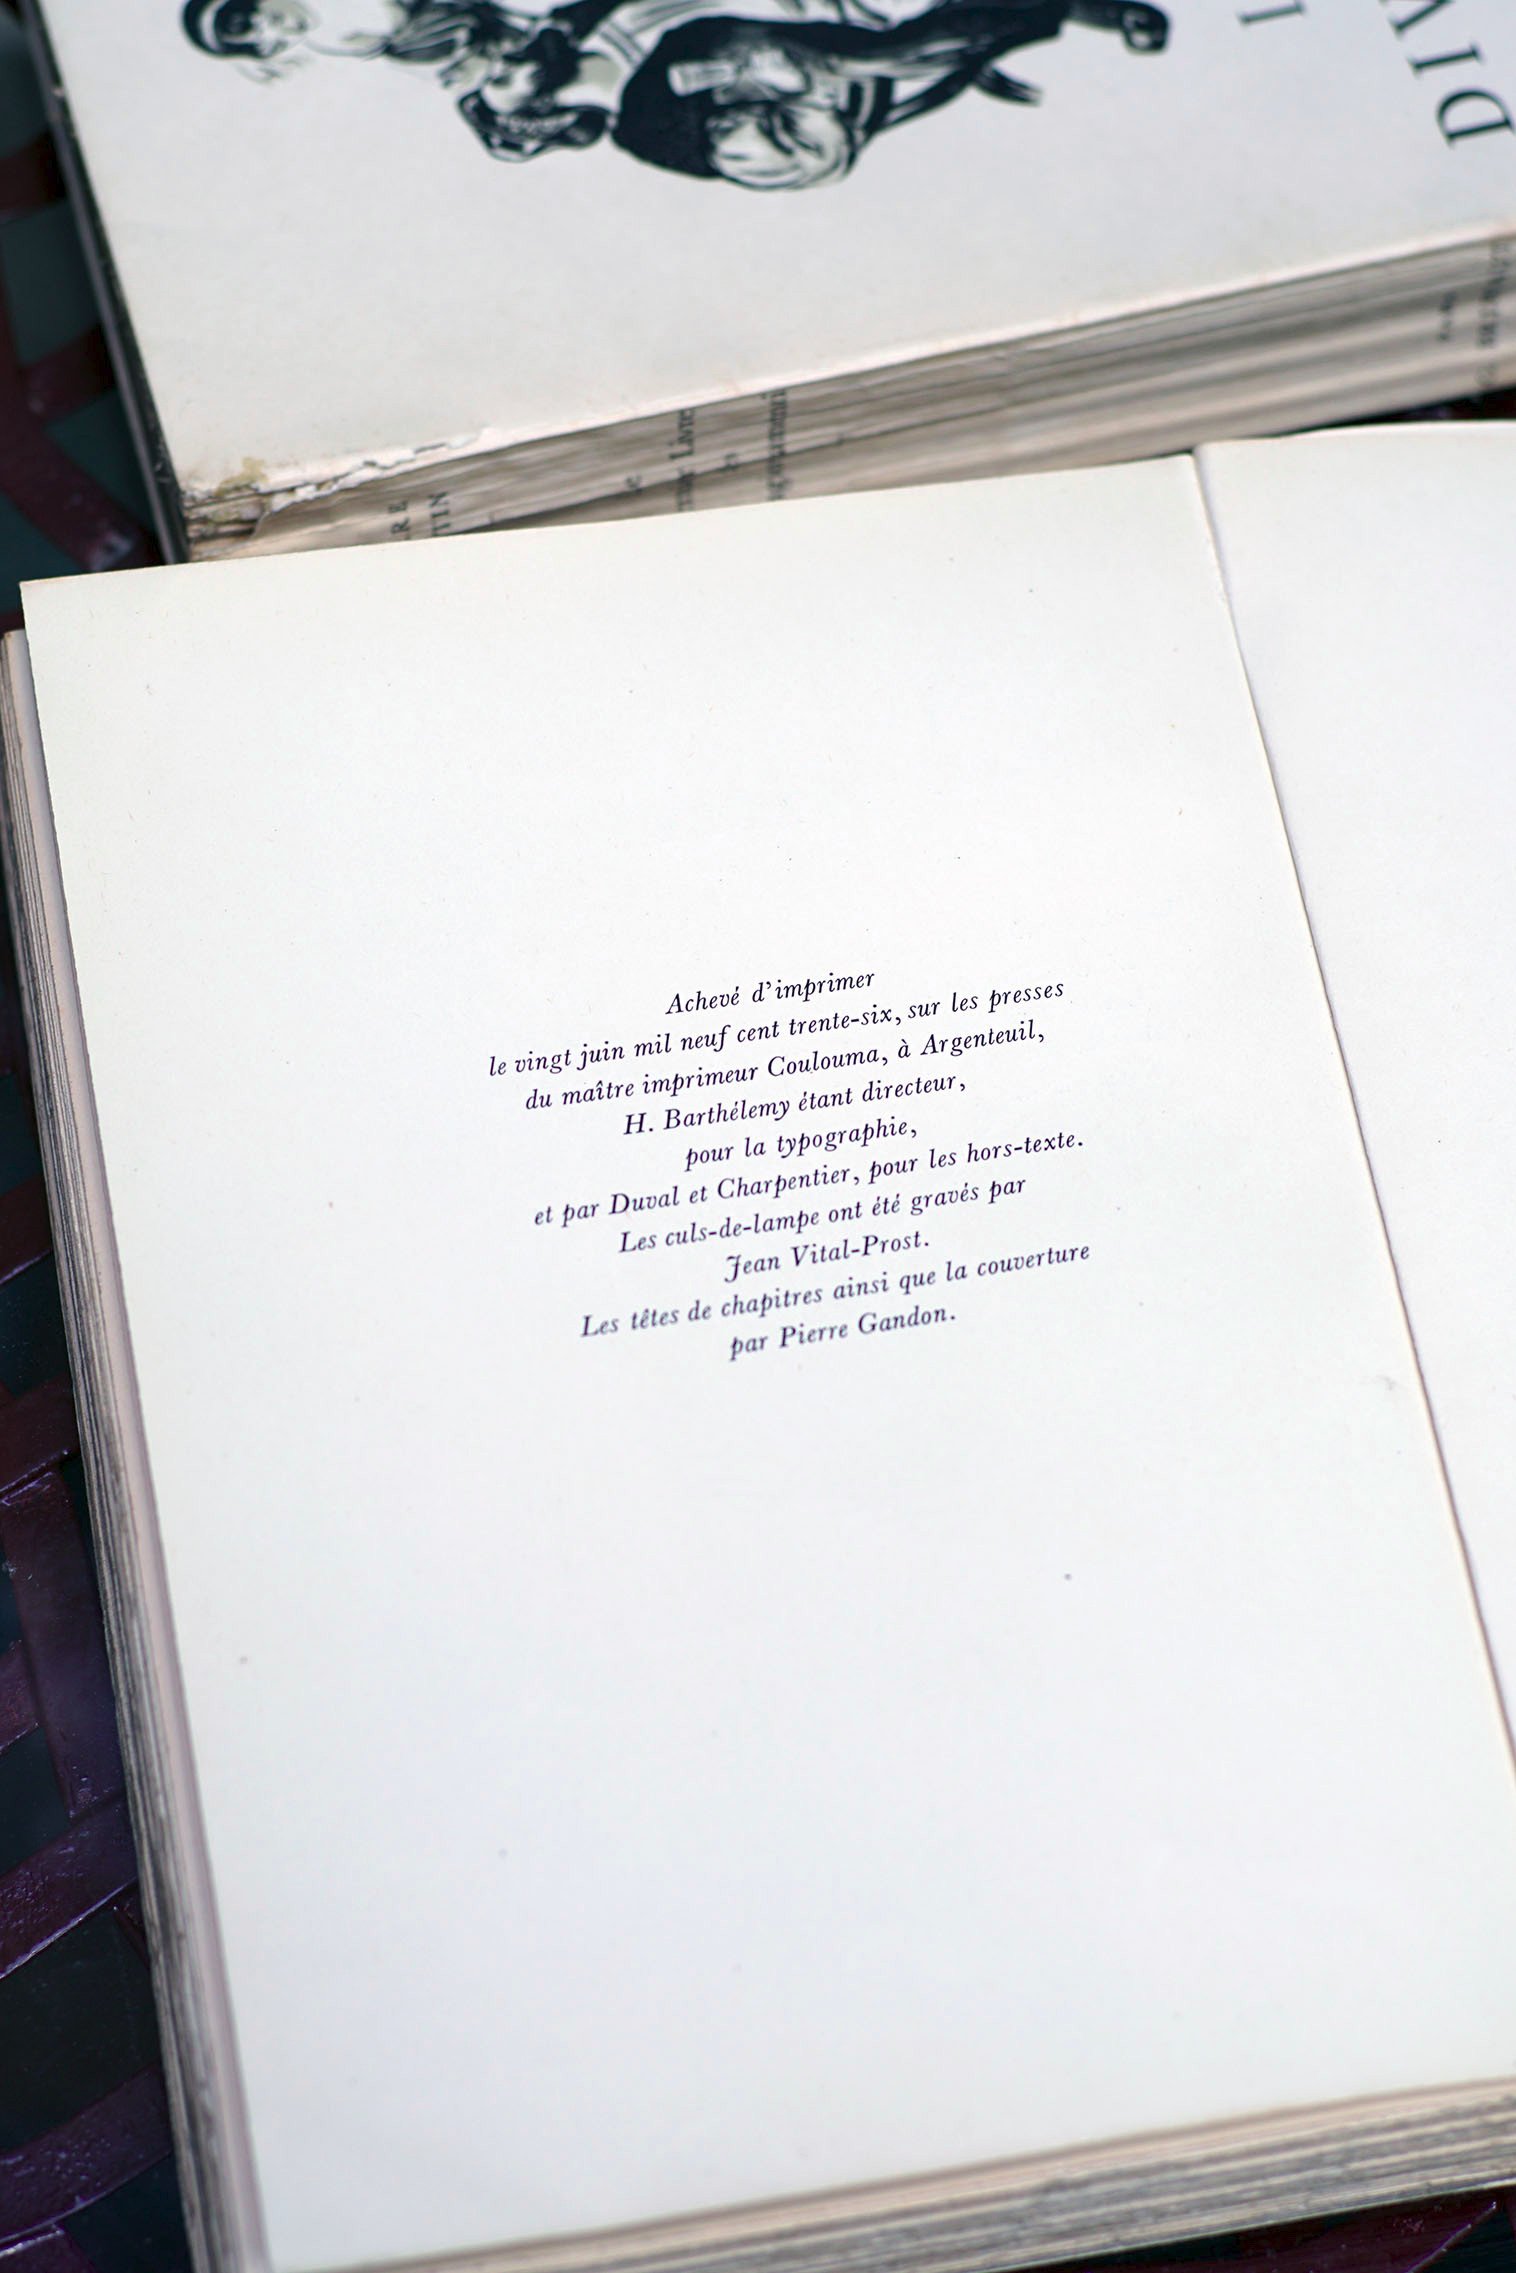 DIV
I
Achevé d'imprimer
le vingt juin mil neuf cent trente-six, sur les presses
du maître imprimeur Coulouma, à Argenteuil,
H. Barthélemy étant directeur,
pour la typographie,
et par Duval et Charpentier, pour les hors-texte.
Les culs-de-lampe ont été gravés par
Jean Vital-Prost.
Les têtes de chapitres ainsi que la couverture
par Pierre Gandon.